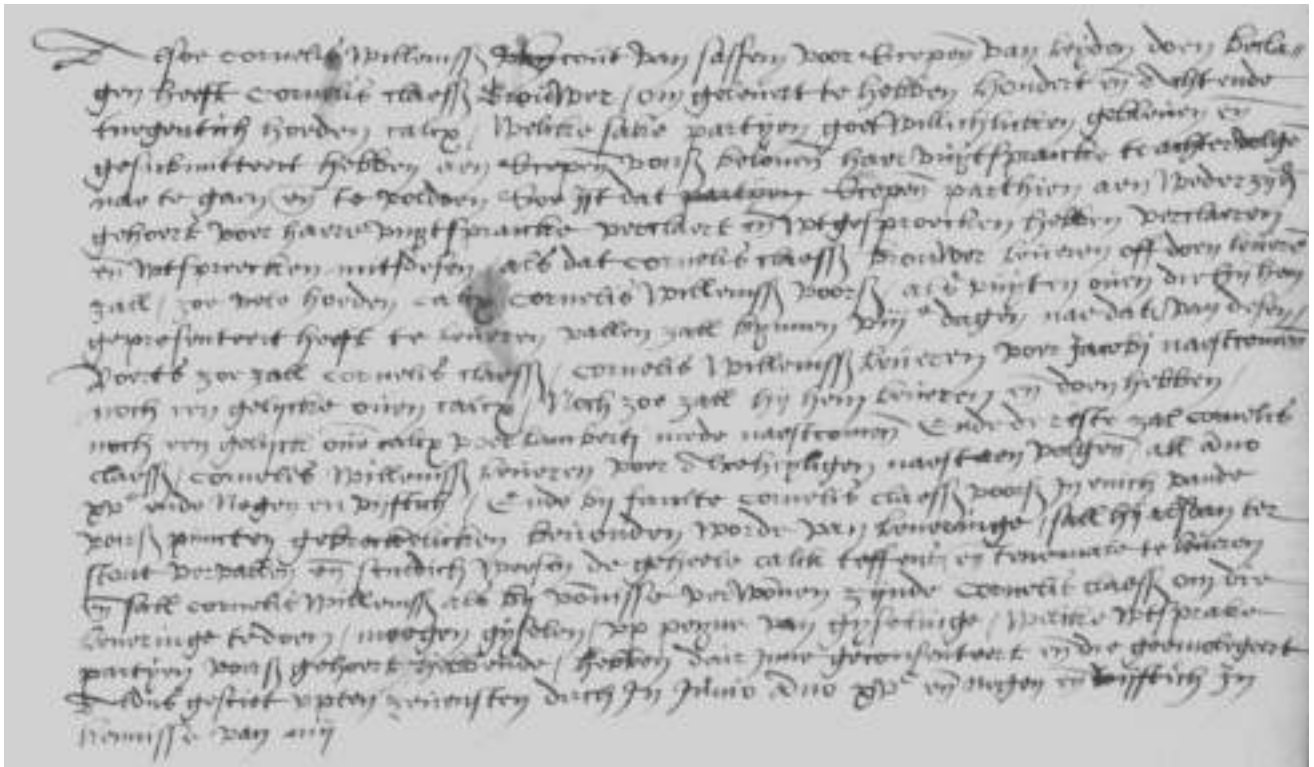 Alsoe cornelis Willemss scout van sassem voor Scepen van leyden doen becla-
gen heeft Cornelis claess brouwer / om gelevert te hebben hondert en achtende
tnegentich hoeden calcx / Welcke sake partyen goetwillichlicken gebleven en
gesubmitteert hebben aen Scepen voirss belovende haer vuytspraicke te achtervolge
nae te gaen en te voldoen Soe ist dat Scepen parthien aen wederzyd
gehoert voer haere vuytspraicke verclaert en wtgesproecken hebben verclaeren
en wtspreecken mitsdesen / als dat cornelis claess brouwer leveren off doen levere
zall / zoe vele hoeden calcx Cornelis Willemss voorss / als vuyten oven die hy hem
gepresenteert heeft te leveren vallen zall bynnen dagen nae data van desen
Voerts zoe zall cornelis claess / cornelis Willemss leveren voer Jacobi naestcomen
noch een gelycke oven calcx / Noch zoe zall hy hem leveren en doen hebben
noch een gelycke oven calcx voer lamberti mede naestcomen Ende de reste zal cornelis
claess / cornelis Willemss leveren voer alreheyligen naest volgen all anno
xvc ende negen en vyftich / Ende by faulte cornelis claess voorss in enich vande
voirss puncten gebreckelicken bevonden worde van leveringe / sall hy alsdan ter
stont vervallen en sculdich wesen de geheele calck teffens en teenemale te leveren
en sall cornelis Willemss als by vonnisse verwonnen zynde Cornelis claess om die
leveringe te doen / moegen gyselen / op peyne van gyselinge / Welcke wtsprake
partyen voirss gehoert hebbende / hebben dair inne geconsenteert en die geemologeert
Aldus gesciet upten zevensten dach in Junio anno xvc en negen en vyftich In
kennisse van mij